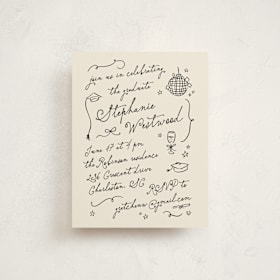 join us in celebrating
the graduate
Stephanie
Westwood
June 17 at 4 pm
the Robinson residence
236 Crescent Drive
Charleston, SC
RSVP to
gretchenw@gmail.com